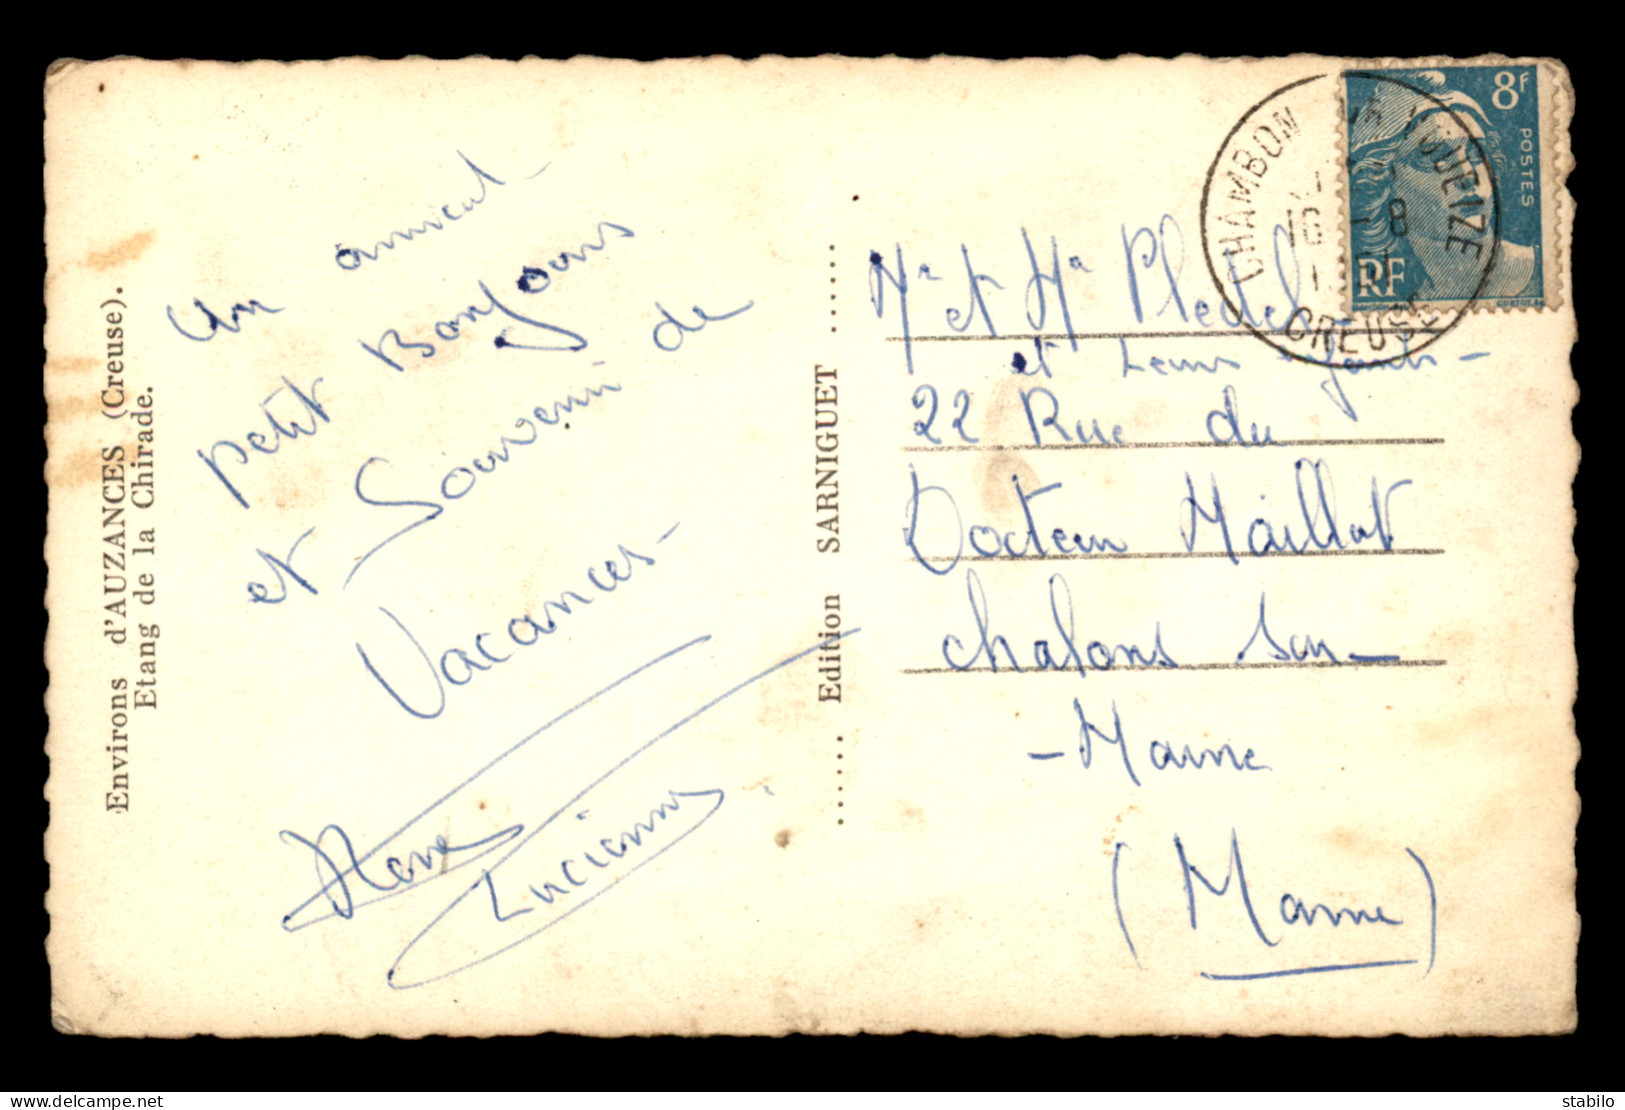 Environs d'AUZANCES (Creuse).
Etang de la Chirade.
Un amical
petit Bonjour
et Souvenir de
Vacances -
Lucienne
Edition SARNIGUET
CHAMBON VOUEIZE
16 - 8
CREUSE
8F
POSTES
RF
Mr et Me
et Leurs enfants -
22 Rue du
Docteur Maillot
Chalons sur -
- Marne
(Marne)
delcampe.net
stabilo